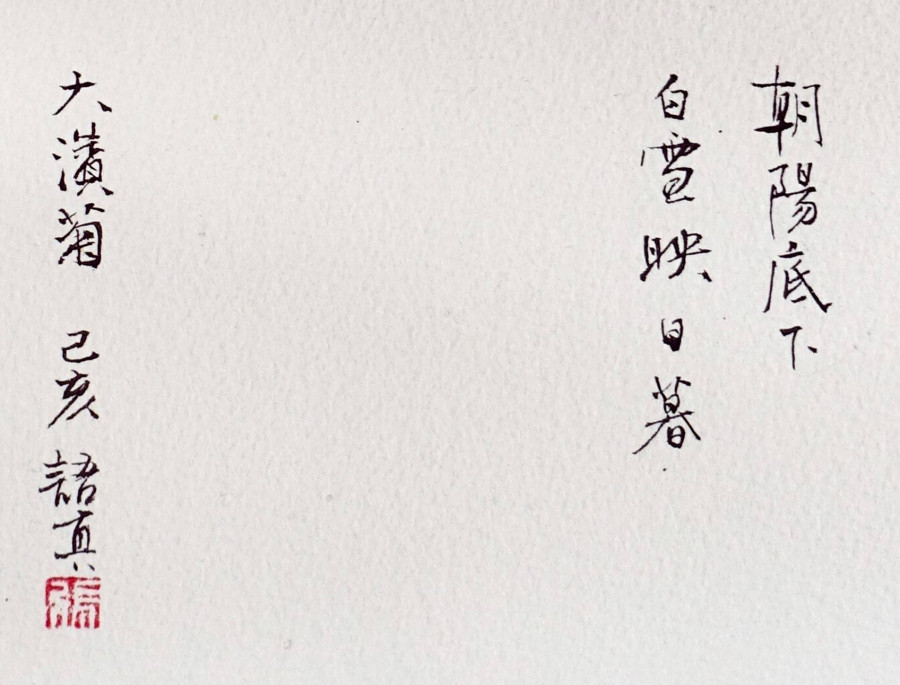 朝陽底下
白雪映日暮
大濱菊 己亥 語真
張